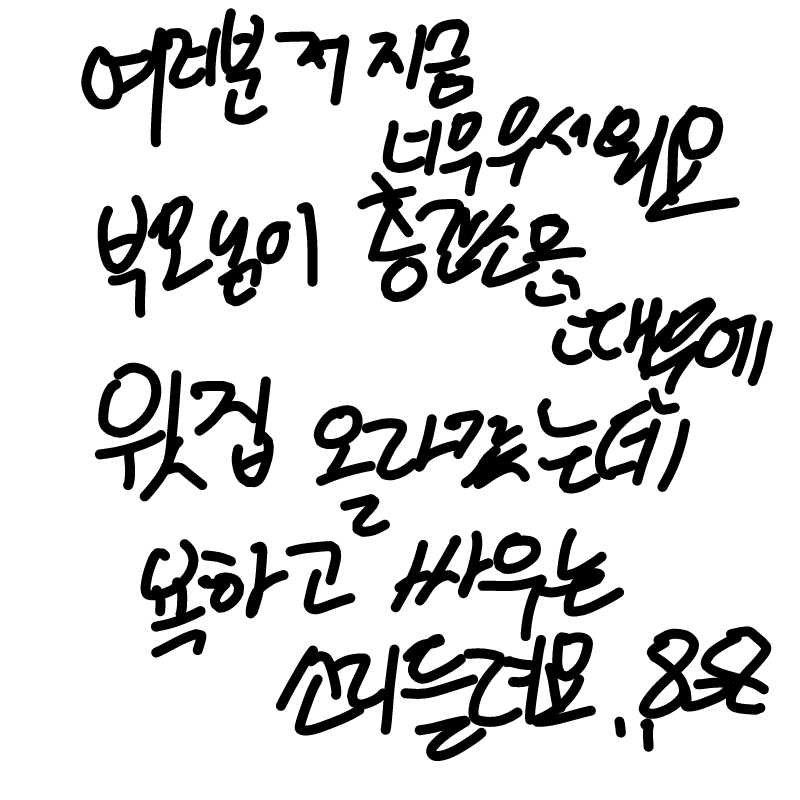 여러분 저 지금
너무 무서워요
부모님이 층간소음
때문에
윗집 올라갔는데
욕하고 싸우는
소리 들려요..